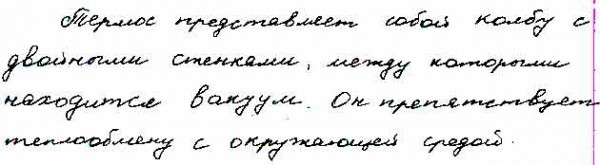 Термос представляет собой колбу с
двойными стенками, между которыми
находится вакуум. Он препятствует
теплообмену с окружающей средой.